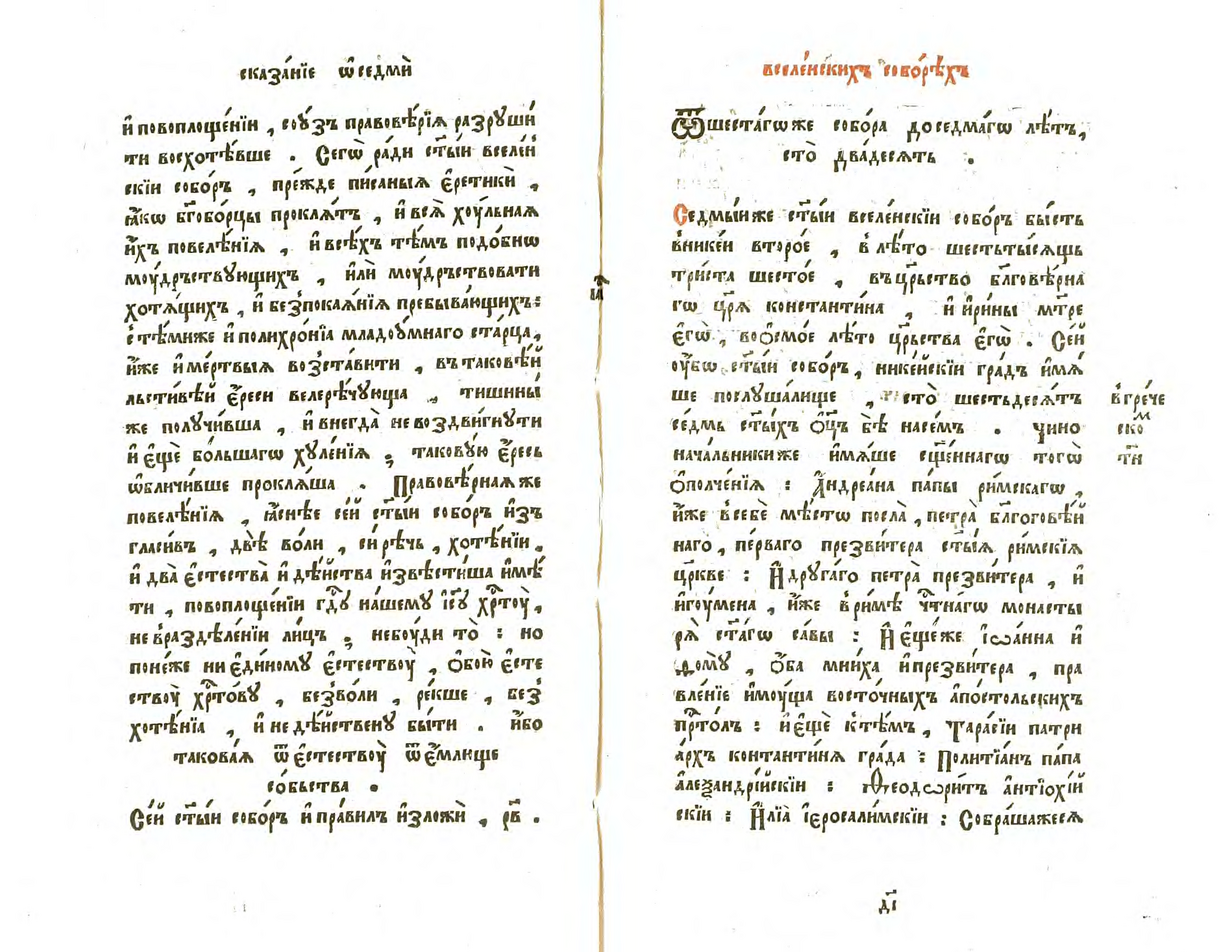 сказа́нїе ѡ҆седмѝ
и҆повоплоще́нїи , сою́зъ правовѣ́рїѧ разрꙋши́
ти восхотѣ́вше . Сегѡ̀ ра́ди ст҃ы́и вселе́н
скїи собо́ръ , пре́жде пи́саныѧ є҆ретикѝ ,
ꙗ҆́кѡ бг҃обо́рцы проклѧ́тъ , и҆всѧ̀ хоу́льнаѧ
и҆́хъ повелѣ́нїѧ , и҆всѣ́хъ тѣ́мъ подо́бнѡ
моу́дръствꙋющихъ , и҆лѝ моу́дръствовати
хотѧ́щихъ , и҆безпокаѧ́нїѧ пребыва́ющихъ:
стѣ́миже и҆полихро́нїа младоу́мнаго ста́рца,
и҆́же и҆ме́ртвыѧ возста́вити , въ таковѣ́й
льсти́вѣй є҆́реси велерѣ́чꙋюща , тишины̀
же полꙋчи́вша , и҆внегда̀ невоздви́гнꙋти
и҆є҆щѐ бо́льшагѡ хꙋле́нїѧ ; такову́ю є҆́ресь
ѡ҆бличи́вше проклѧ́ша . Правовѣ́рнаѧ же
повелѣ́нїѧ , ꙗ҆́снѣе се́й ст҃ы́и собо́ръ и҆зъ
гласи́въ , двѣ̀ во́ли , си́рѣчь , хотѣ́нїи ,
и҆ два̀ є҆стества̀ и҆дѣ́йства и҆звѣсти́ша и҆мѣ́
ти , повоплоще́нїи гд҇ꙋ на́шемꙋ і҆с҃ꙋ хрт҇оу̀ ,
не враздѣле́нїи ли́цъ ; небоу́ди то̀ : но
поне́же ни є҆ди́номꙋ є҆стествоу̀ , ѻ҆бою̀ є҆сте
ствоу̀ хрт҇о́вꙋ , без̾во́ли , ре́кше , без̾
хотѣ́нїа , и҆ не дѣ́йственꙋ бы́ти . и҆́бо
такова́ѧ ѿ є҆стествоу̀ ѿе́млище
со́бьства .
Се́й ст҃ы́и собо́ръ и҆ пра́вилъ и҆зложѝ , рв҃ .
вселе́нскихъ собо́рѣхъ
Ѿшеста́гѡже собо́ра доседма́гѡ лѣ́тъ,
сто̀ два́десѧть .
Седмы́иже ст҃ы́и вселе́нскїи собо́ръ бы́сть
вники́и второ́е , в лѣ́то шестьты́сѧщь
три́ста шесто́е , въ цр҇ьство бл҃говѣ́рна
гѡ цр҃ѧ̀ константи́на , и҆ и҆ри́ны мт҃ре
є҆гѡ̀ , восмо́е лѣ́то цр҇ьства є҆гѡ̀ . Се́й
оу҆́бѡ ст҃ы́и собо́ръ , нике́йскїи гра́дъ и҆мѧ́
ше послꙋша́лище , сто̀ шестьдесѧ́тъ
се́дмь ст҃ы́хъ ѻ҆ц҃ъ бѣ̀ насе́мъ . чино
нача́льникиже и҆мѧ́ше сщ҃е́ннагѡ тогѡ̀
ѻ҆полче́нїѧ : А҆ндреа́на па́пы ри́мскагѡ ,
и҆́же всебѐ мѣ́стѡ посла̀ , петра̀ бл҃гоговѣ́й
наго , пе́рваго презви́тера ст҃ы́ѧ ри́мскїѧ
цр҃кве : И҆ дрꙋга́го петра̀ презви́тера , и҆
и҆гоу́мена , и҆́же в ри́мѣ чт҇на́гѡ монасты
рѧ̀ ст҃а́гѡ са́вы : И҆ є҆ще́же і҆ѡа́нна и҆
ѳомꙋ̀ , ѻ҆́ба мни́ха и҆презви́тера , пра
вле́нїе и҆моу́ща восто́чныхъ а҆по́стольскихъ
прт҇о́лъ : и҆ є҆щѐ к тѣ́мъ , Тара́сїи патри
а́рхъ контанти́нѧ гра́да : Политїа́нъ па́па
а҆леѯандрі́йскїи : Ѳеодѡри́тъ а҆нтїохі́й
скїи : И҆лїа̀ і҆єросали́мскїи : Собра́шажесѧ
в гре́че
ско м
ти
дı҃